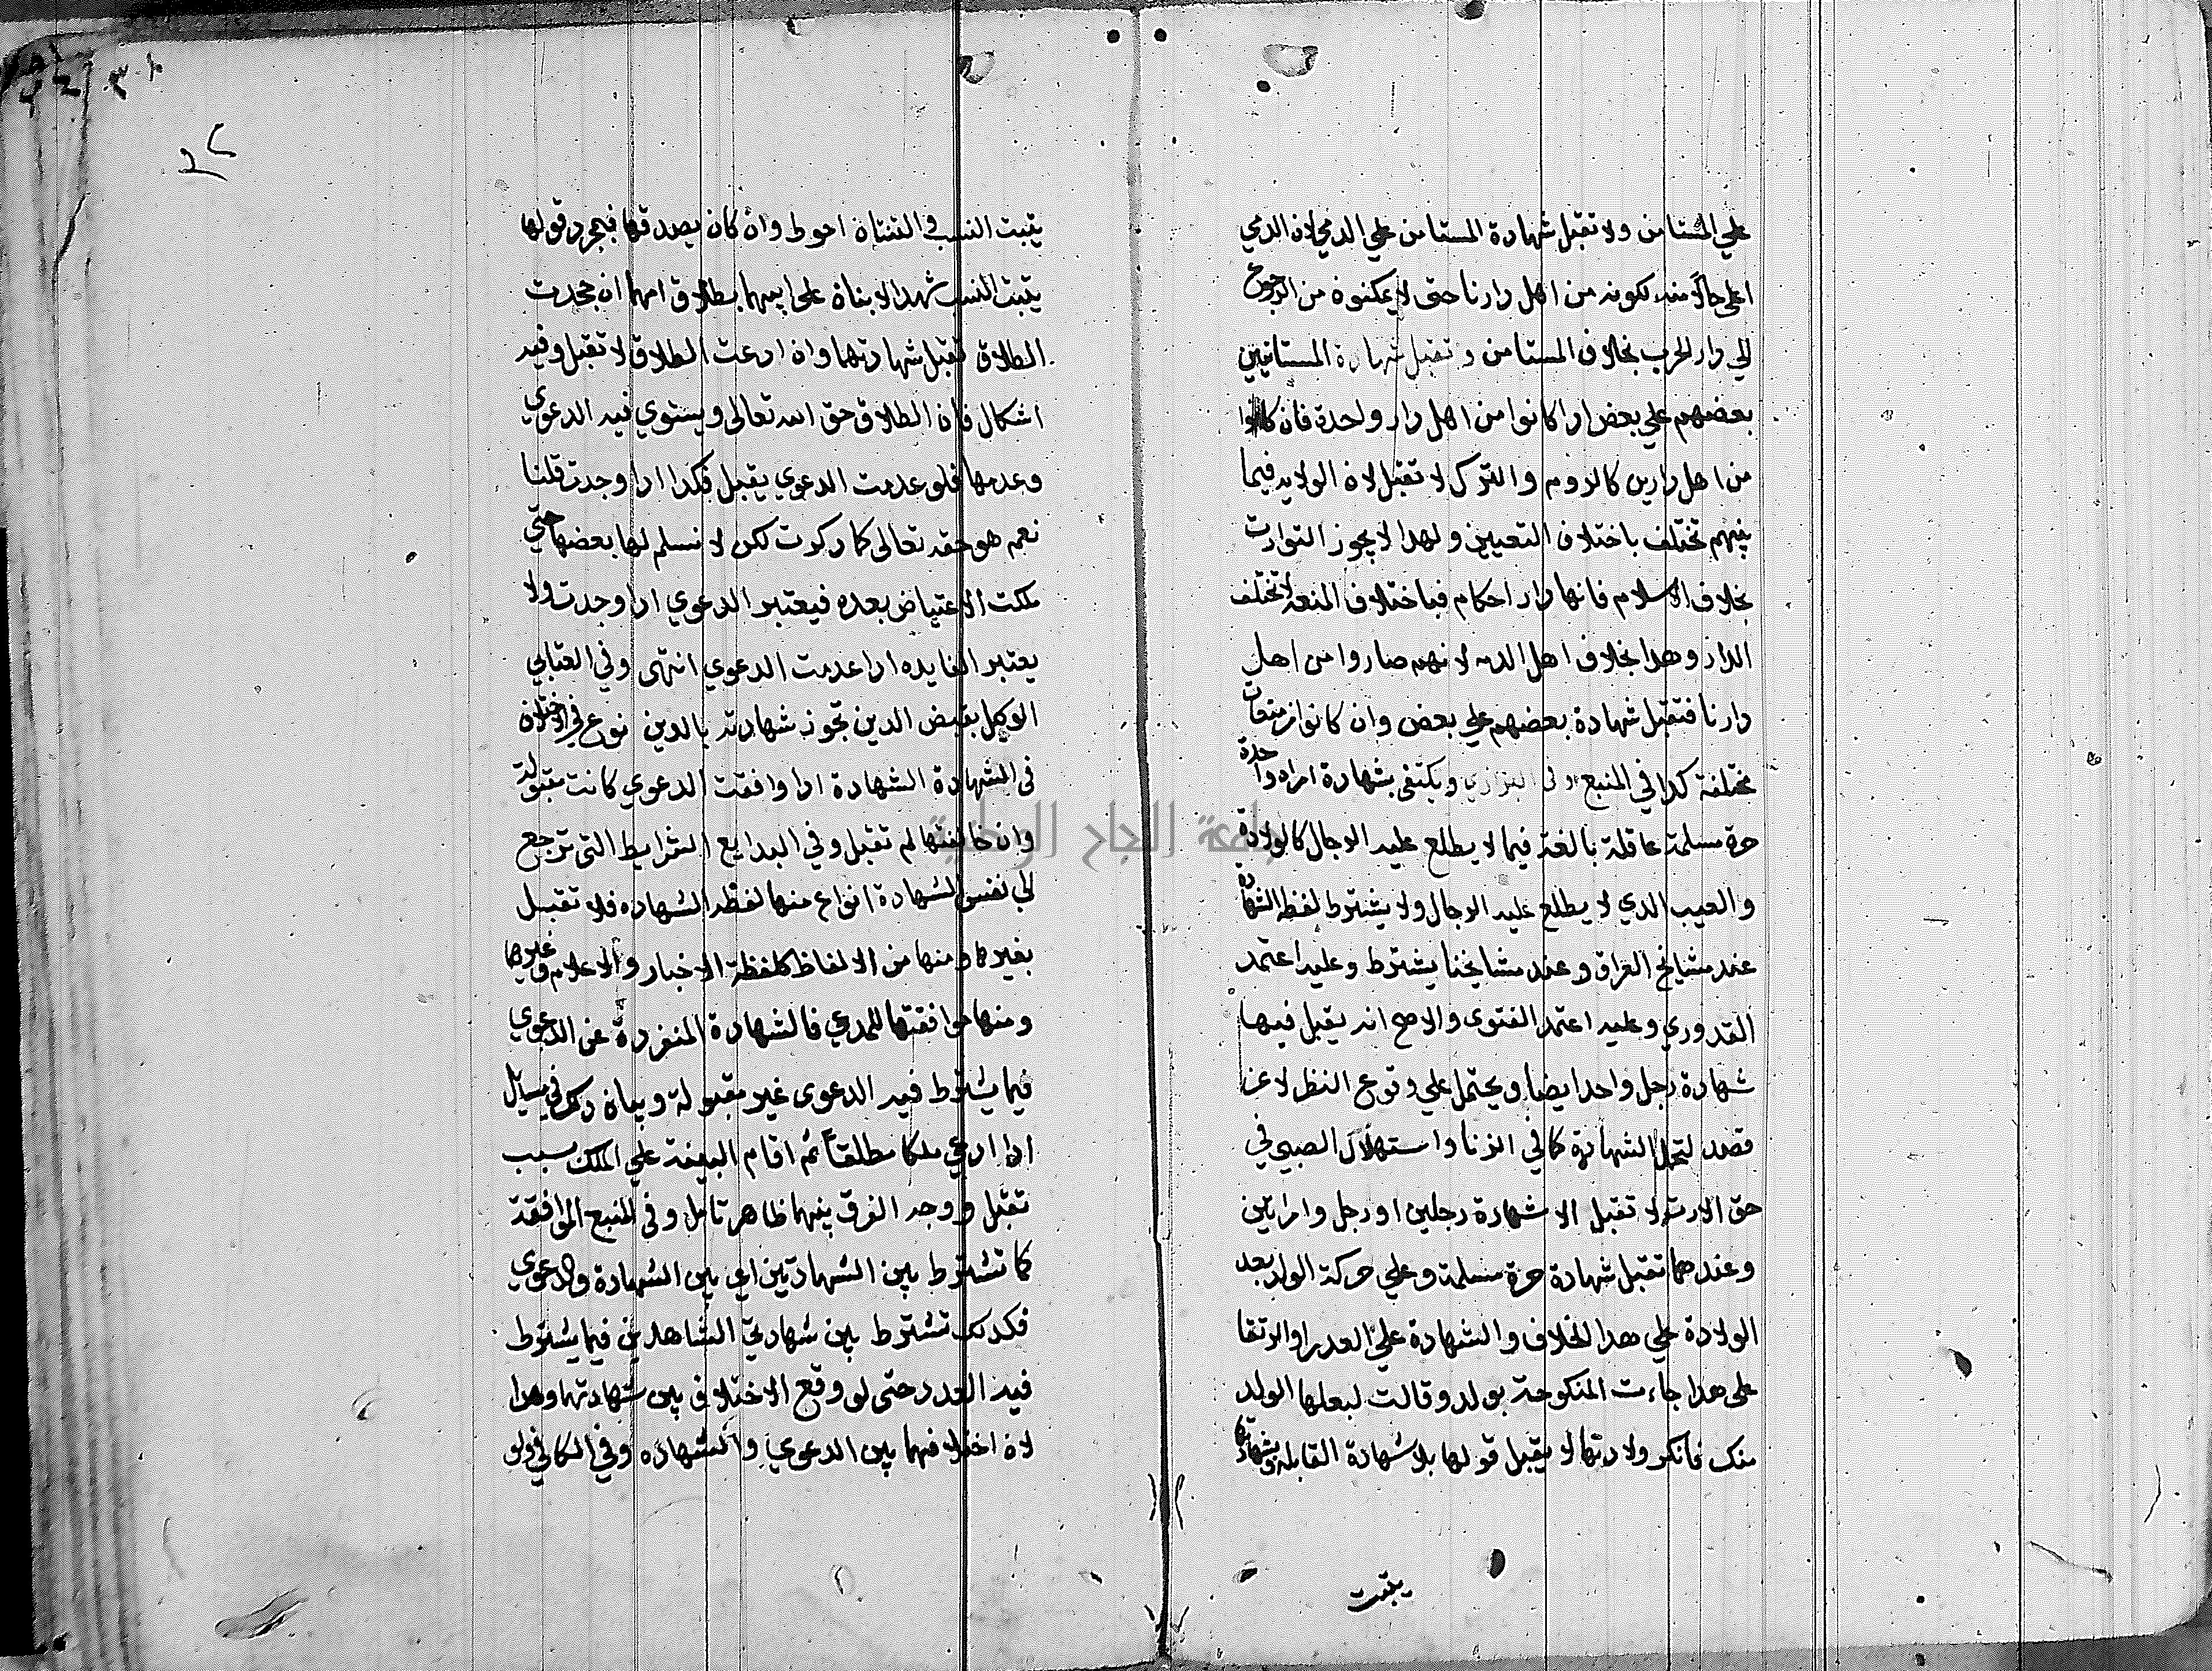 علي المستامن ولا تقبل شهادة المستامن علي الدمي لان الدمي
اعلي حالا منه لكونه من اهل دارنا حتى لا يمكنوه من الرجوع
الي دار الحرب بخلاف المستامن وتقبل شهادة المستامنين
بعضهم علي بعض ادا كانوا من اهل دار واحدة فان كانوا
من اهل دارين كالروم والترك لا تقبل لان الولايه فيما
بينهم تختلف باختلاف التعيين ولهدا لا يجوز التوارث
بخلاف الاسلام فانها دار احكام فباختلاف المنعه لا تختلف
الدار وهدا بخلاف اهل الدمه لانهم صاروا من اهل
دارنا فتقبل شهادة بعضهم علي بعض وان كانوا من منعات
مختلفة كدا في المنبع وفي البزازي ويكتفى بشهادة امراه واحدة
حرة مسلمة عاقلة بالغة فيما لا يطلع عليه الرجال كالولادة
والعيب الدي لا يطلع عليه الرجال ولا يشترط لفظ الشهادة
عند مشايخ العراق وعند مشايخنا يشترط وعليه اعتمد
القدوري وعليه اعتمد الفتوى والاصح انه يقبل فيها
شهادة رجل واحد ايضا ويحتمل علي وقوع النظر لا عن
قصد لتحمل الشهادة كما في الزنا واستهلال الصبي في
حق الارث لا تقبل الا شهادة رجلين او رجل وامراتين
وعندهما تقبل شهادة حرة مسلمة وعلي حركة الولد بعد
الولادة علي هدا الخلاف والشهادة علي العدرا والرتقا
على هدا جاءت المنكوحة بولد وقالت لبعلها الولد
منك فانكر ولادتها لا يقبل قولها بلا شهادة القابله وبشهادتها
يتبت
٢٢
يتبت النسب في الفتيان احوط وان كان يصدقها فبمجرد قولها
يتبت النسب شهد الابنان على ابيهما بطلاق امهما ان جحدت
الطلاق تقبل شهادتهما وان ادعت الطلاق لا تقبل وفيه
اشكال فان الطلاق حق الله تعالى ويستوي فيه الدعوي
وعدمها فلو عدمت الدعوي يقبل فكدا ادا وجدت قلنا
نعم هو حقه تعالى كما دكرت لكن لا نسلم لها بعضها حتي
ملكت الاعتياض بعده فيعتبر الدعوي ادا وجدت ولا
يعتبر الفايده ادا عدمت الدعوي انتهى وفي العتابي
الوكيل بقبض الدين تجوز شهادته بالدين نوع في الاختلاف
في الشهادة الشهادة ادا وافقت الدعوي كانت مقبولة
وان خالفتها لم تقبل وفي البدايع الشرايط التي ترجع
الي نفس الشهادة انواع منها لفظ الشهاده فلا تقبل
بغيرها ومنها من الالفاظ كلفظة الاخبار والاعلام وغيرها
ومنها موافقتها للمدعي فالشهادة المنفردة عن الدعوي
فيما يشترط فيه الدعوى غير مقبولة وبيان دكر في مسايل
ادا ادعي ملكا مطلقا ثم اقام البينة علي الملك بسبب
تقبل ووجه الفرق بينهما ظاهر تامل وفي المنبع الموافقة
كما تشترط بين الشهادتين اي بين الشهادة والدعوي
فكدلك تشترط بين شهادتي الشاهدين فيما يشترط
فيه العدد حتى لو وقع الاختلاف بين شهادتهما وهدا
لان اختلافهما بين الدعوي والشهاده وفي الكافي ولو
جامعة النجاح الوطنية